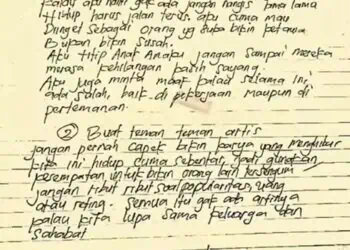 Kalau apu nanti gak ada jangan nangis bina lama
Hidup harus jalan terus. apu cuma mau
Diinget sebagai orang yg suka bikin ketawa
Bukan bikin susah.
Aku titip Anak Anakpu jangan sampai mereka
merasa kehilangan kasih sayang.
Aku juga minta maaf kalau selama ini
ada salah, baik di pekerjaan maupun di
pertemanan.
② Buat teman teman artis
jangan pernah capek bikin karya yang menghibur
kita ini hidup cuma sebentar, jadi gunakan
kesempatan untuk bikin orang lain tersenyum
jangan ribut ribut soal popularitas, uang
atau rating. semua itu gak ada artinya
kalau kita lupa sama keluarga dan
sahabat